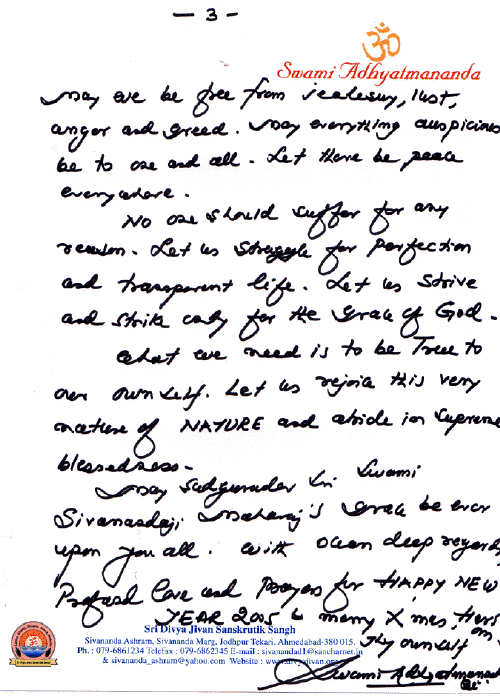 — 3 —
ॐ
Swami Adhyatmananda
May we be free from jealousy, lust,
anger and greed. May everything auspicious
be to one and all. Let there be peace
everywhere.
No one should suffer for any
reason. Let us struggle for perfection
and transparent life. Let us strive
and strik only for the grace of God.
What we need is to be True to
our own self. Let us rejoice this very
nature of NATURE and abide in supreme
blessedness.
May Sadgurudev Sri Swami
Sivanandaji Maharaj's grace be ever
upon you all. With ocean deep regards,
Profound Love and Prayers for HAPPY NEW
YEAR 2005 & merry X'mas, Hari Om
Thy own self
Swami Adhyatmananda
Sri Divya Jivan Sanskrutik Sangh
Sivananda Ashram, Sivananda Marg, Jodhpur Tekari, Ahmedabad-380 015.
Ph. : 079-6861234 Telefax : 079-6862345 E-mail : sivanandad1@sancharnet.in
& sivananda_ashram@yahoo.com Website : www.divyajivan.org